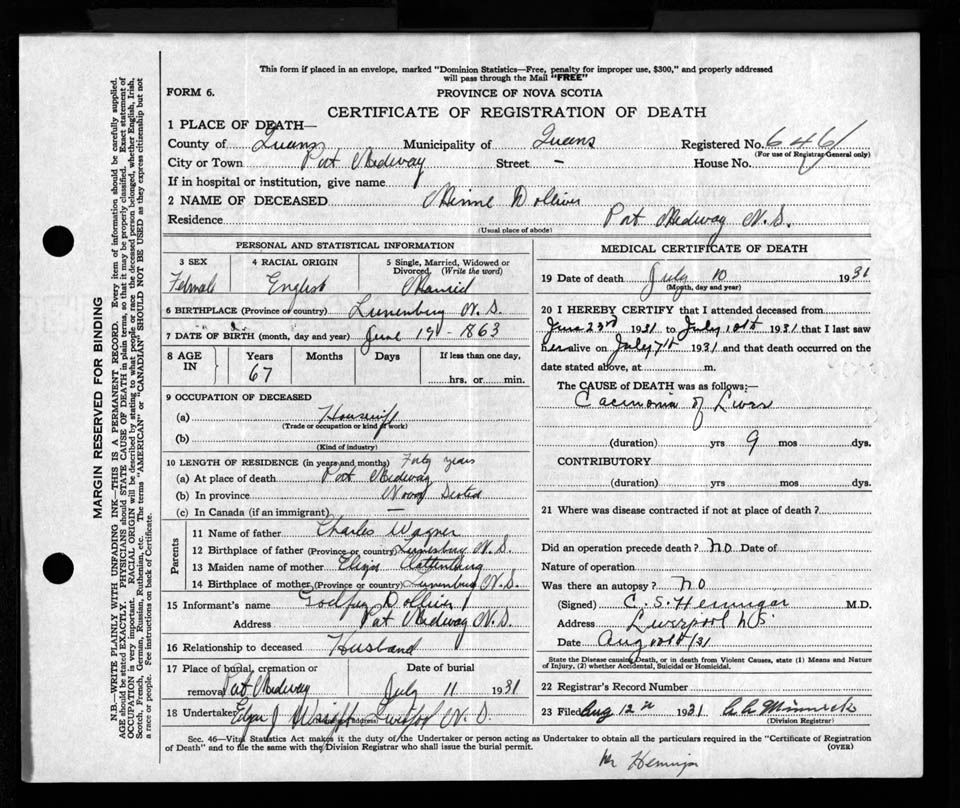 This form if placed in an envelope, marked "Dominion Statistics—Free, penalty for improper use, $300," and properly addressed
will pass through the Mail "FREE"
FORM 6.
PROVINCE OF NOVA SCOTIA
CERTIFICATE OF REGISTRATION OF DEATH
1 PLACE OF DEATH—
County of Queens Municipality of Queens Registered No. 6461
(For use of Registrar General only)
City or Town Port Medway Street — House No.
If in hospital or institution, give name
2 NAME OF DECEASED Minnie Dolliver
Residence Port Medway N.S.
(Usual place of abode)
PERSONAL AND STATISTICAL INFORMATION
3 SEX 4 RACIAL ORIGIN 5 Single, Married, Widowed or
Divorced. (Write the word)
Female English Married
6 BIRTHPLACE (Province or country) Lunenburg N.S.
7 DATE OF BIRTH (month, day and year) June 19 - 1863
8 AGE IN Years Months Days If less than one day,
67 hrs. or min.
9 OCCUPATION OF DECEASED
(a) Housewife
(Trade or occupation or kind of work)
(b)
(Kind of industry)
10 LENGTH OF RESIDENCE (in years and months) Forty years
(a) At place of death Port Medway
(b) In province Nova Scotia
(c) In Canada (if an immigrant) —
Parents
11 Name of father Charles Wagner
12 Birthplace of father (Province or country) Lunenburg N.S.
13 Maiden name of mother Eliza
14 Birthplace of mother (Province or country) Lunenburg N.S.
15 Informant's name Godfrey Dolliver
Address Port Medway N.S.
16 Relationship to deceased Husband
17 Place of burial, cremation or Date of burial
removal Port Medway July 11 1931
18 Undertaker Edgar J Address Liverpool N.S.
MEDICAL CERTIFICATE OF DEATH
19 Date of death July 10 1931
(Month, day and year)
20 I HEREBY CERTIFY that I attended deceased from
June 23rd 1931 to July 10th 1931 that I last saw
her alive on July 7th 1931 and that death occurred on the
date stated above, at m.
The CAUSE of DEATH was as follows:—
Carcinoma of Liver
(duration) yrs 9 mos dys.
CONTRIBUTORY
(duration) yrs mos dys.
21 Where was disease contracted if not at place of death?
Did an operation precede death? no Date of
Nature of operation
Was there an autopsy? no
(Signed) C. S. Hennigar M.D.
Address Liverpool N.S.
Date Aug 10th /31
State the Disease causing Death, or in death from Violent Causes, state (1) Means and Nature
of Injury, (2) whether Accidental, Suicidal or Homicidal.
22 Registrar's Record Number
23 Filed Aug 12th 1931
(Division Registrar)
Sec. 46—Vital Statistics Act makes it the duty of the Undertaker or person acting as Undertaker to obtain all the particulars required in the "Certificate of Registration
of Death" and to file the same with the Division Registrar who shall issue the burial permit.
(OVER)
Mr Hennigar
MARGIN RESERVED FOR BINDING
N.B.—WRITE PLAINLY WITH UNFADING INK—THIS IS A PERMANENT RECORD. Every item of information should be carefully supplied.
AGE should be stated EXACTLY. PHYSICIANS should STATE CAUSE OF DEATH in plain terms, so that it may be properly classified. Exact statement of
OCCUPATION is very important. RACIAL ORIGIN will be described by stating to what people or race the deceased person belonged, whether English, Irish,
Scotch, French, German, Russian, Ruthenian, etc. The terms "AMERICAN" or "CANADIAN" SHOULD NOT BE USED as they express citizenship but not
a race or people. Fee instructions on back of Certificate.